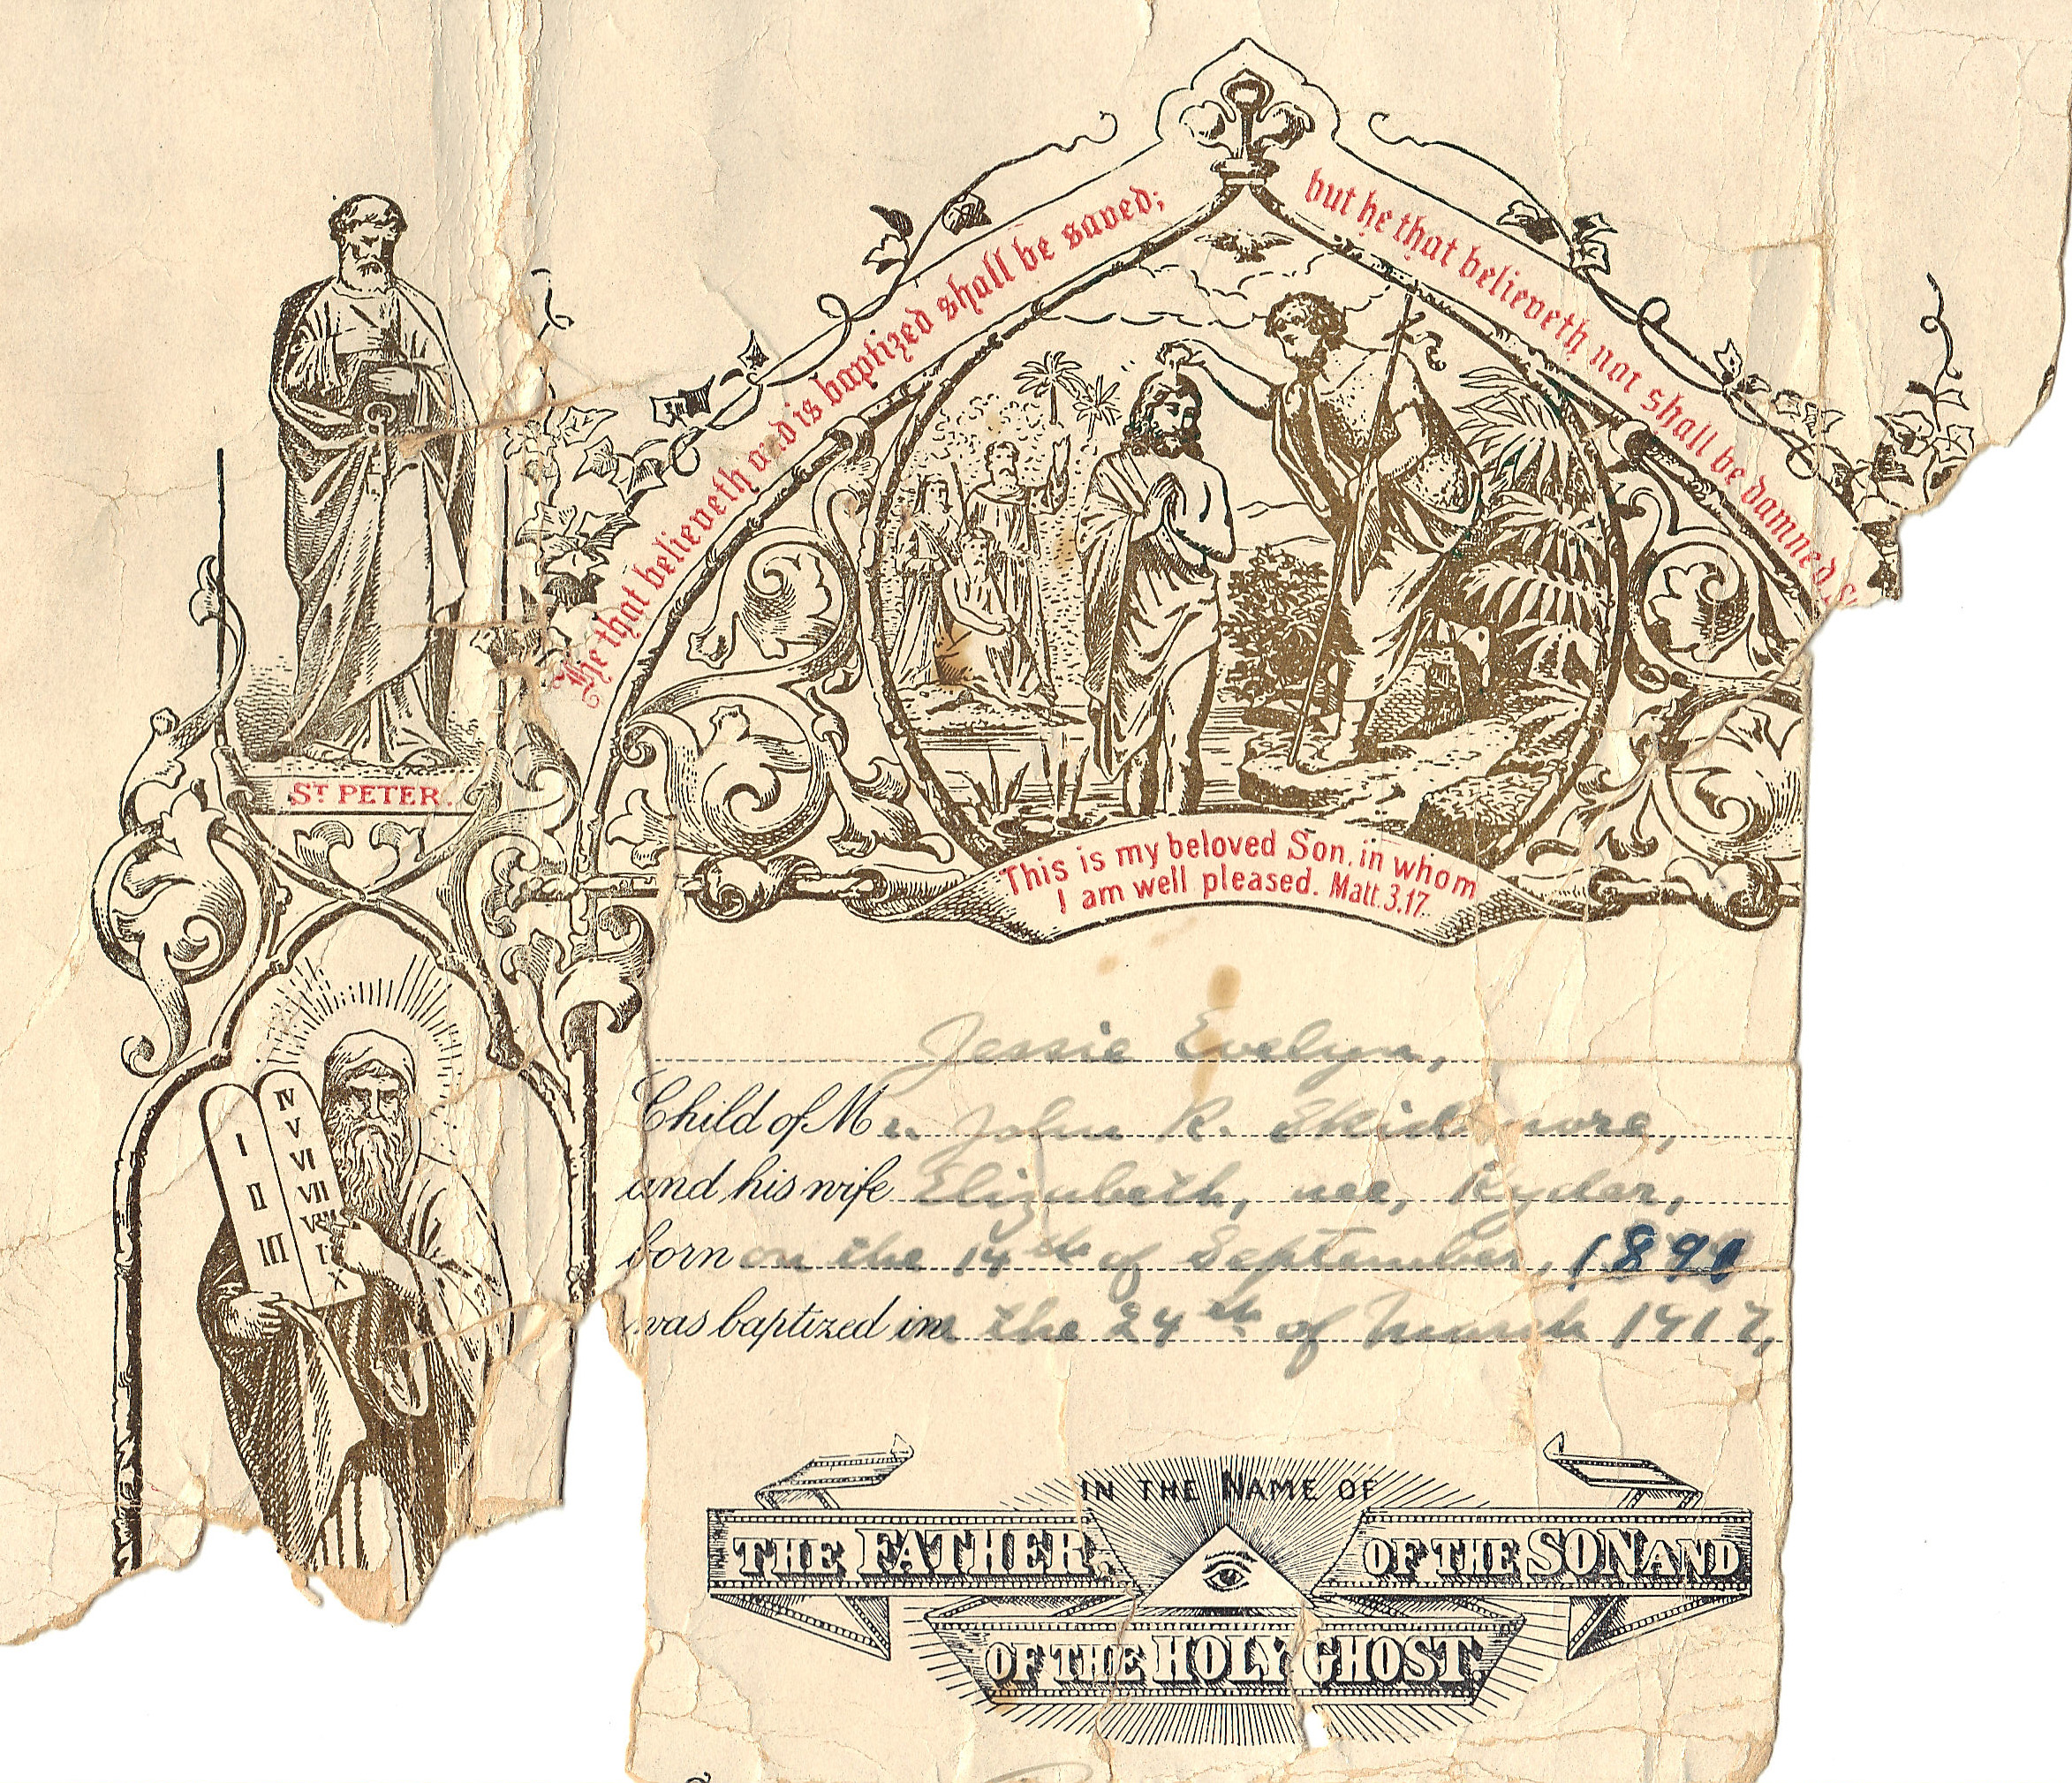 He that believeth and is baptized shall be saved;
but he that believeth not shall be damned.
This is my beloved Son, in whom
I am well pleased. Matt. 3.17.
ST PETER.
I
II
III
IV
V
VI
VII
VIII
X
Jessie Evelyn,
Child of Mr. John R. Skidmore,
and his wife Elizabeth, nee, Ryder,
born on the 14th of September, 1891
was baptized in the 24th of March 1917,
IN THE NAME OF
THE FATHER, OF THE SON AND
OF THE HOLY GHOST.